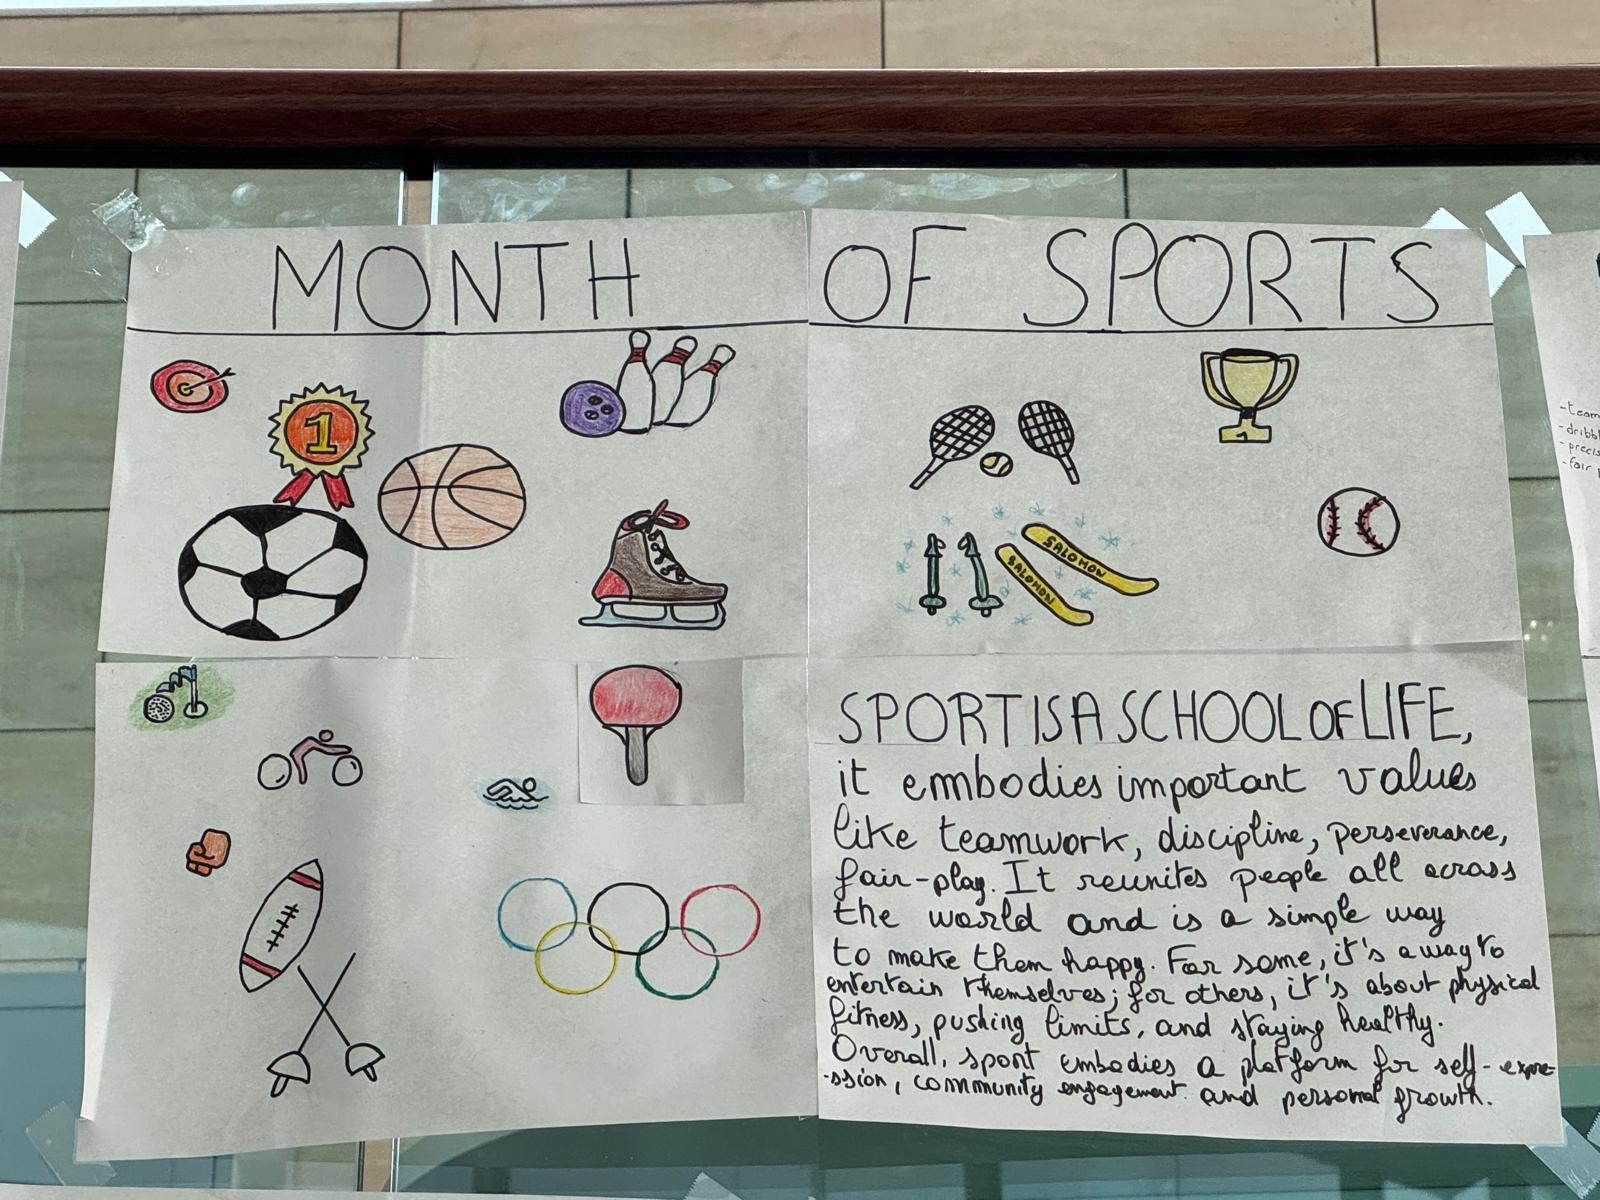 MONTH OF SPORTS
1
1
SALOMON
SALOMON
SPORT IS A SCHOOL OF LIFE,
it embodies important values
like teamwork, discipline, perseverance,
fair-play. It reunites people all across
the world and is a simple way
to make them happy. For some, it's a way to
entertain themselves; for others, it's about physical
fitness, pushing limits, and staying healthy.
Overall, sport embodies a platform for self-expre-
-ssion, community engagement and personal growth.
-team
-dribbl
-precis
-fair